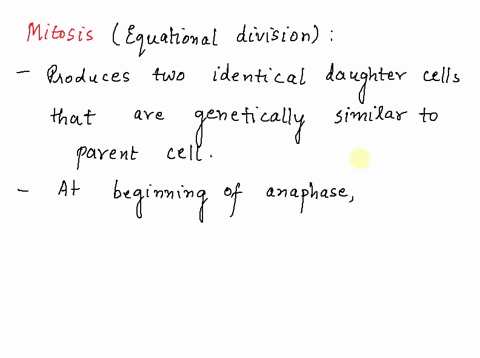 Mitosis (Equational division) :
- Produces two identical daughter cells
that are genetically similar to
parent cell.
- At beginning of anaphase,